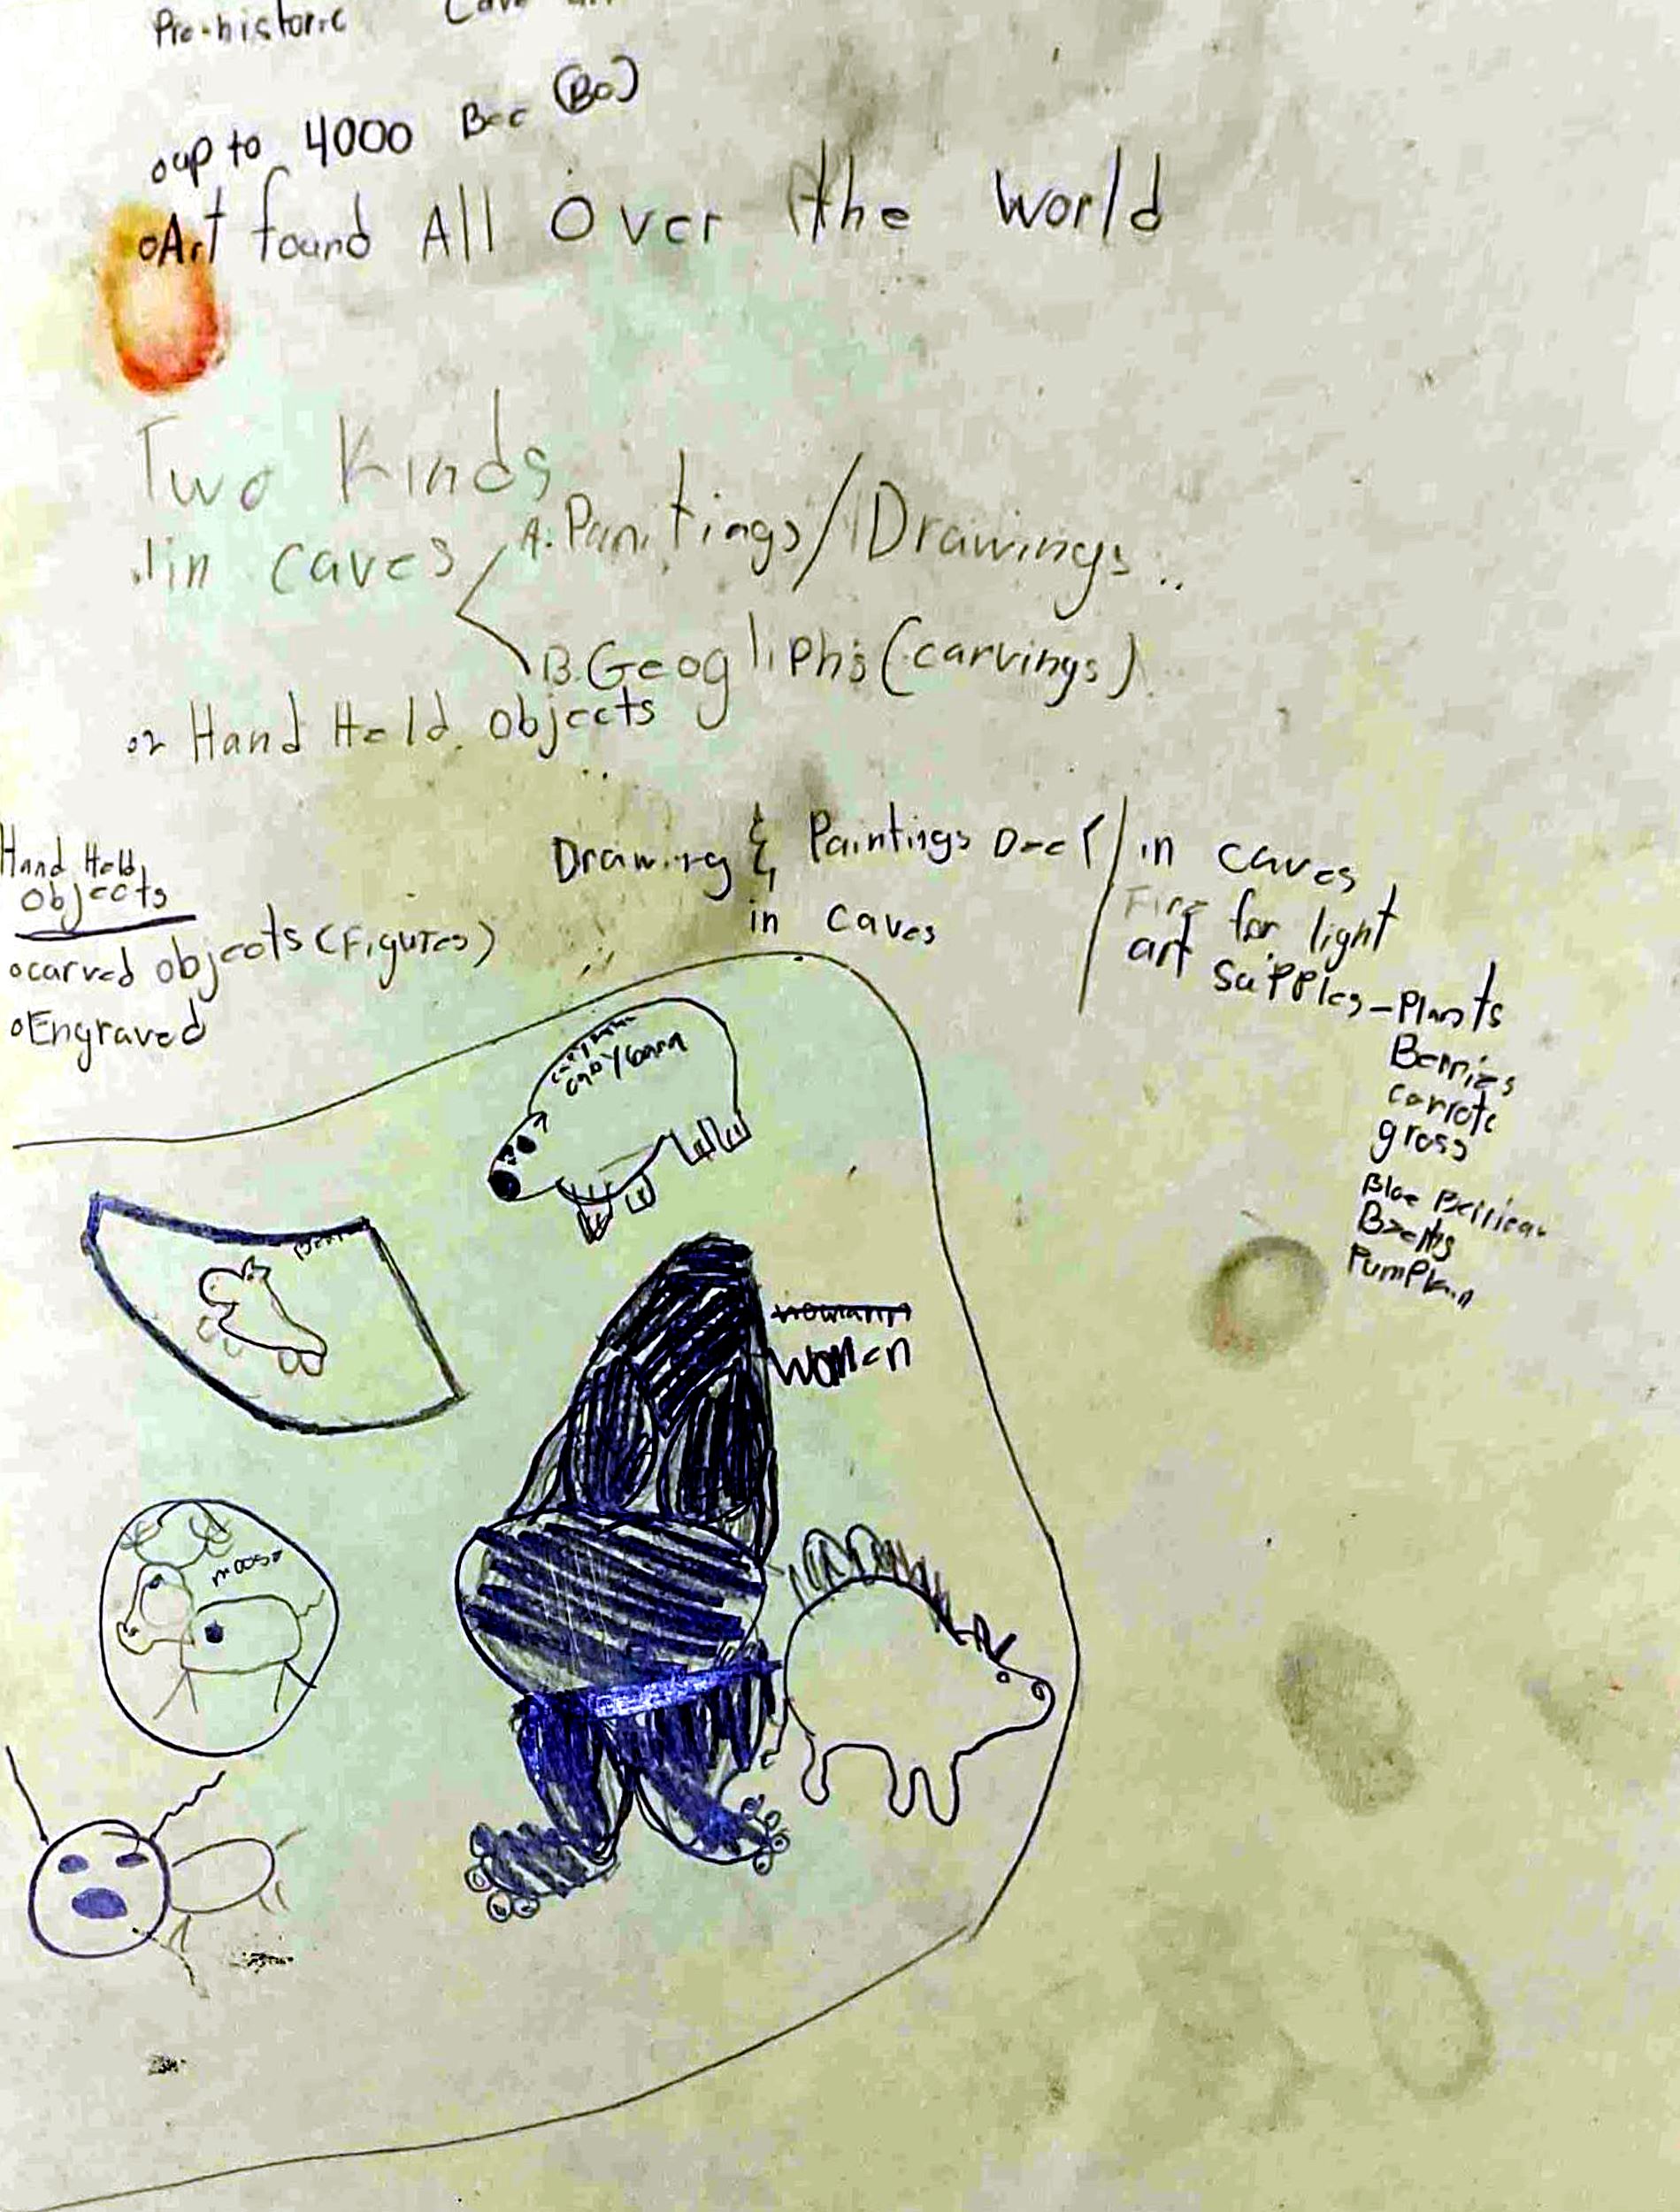 Pre-historic Cave
oup to 4000 Bce (Bc)
oArt found All Over the World
Two Kinds
.1in caves
A. Panitings/Drawings..
B. Geogliphs (carvings)
o2 Hand Held objects
Hand Held
Objects
ocarved objects (Figures)
oEngraved
Drawing & Paintings Deef
in caves
in caves
Fire for light
art Supples-Plants
Berries
carrots
grass
Blue Berries
Pumpkin
capybara
women
moose